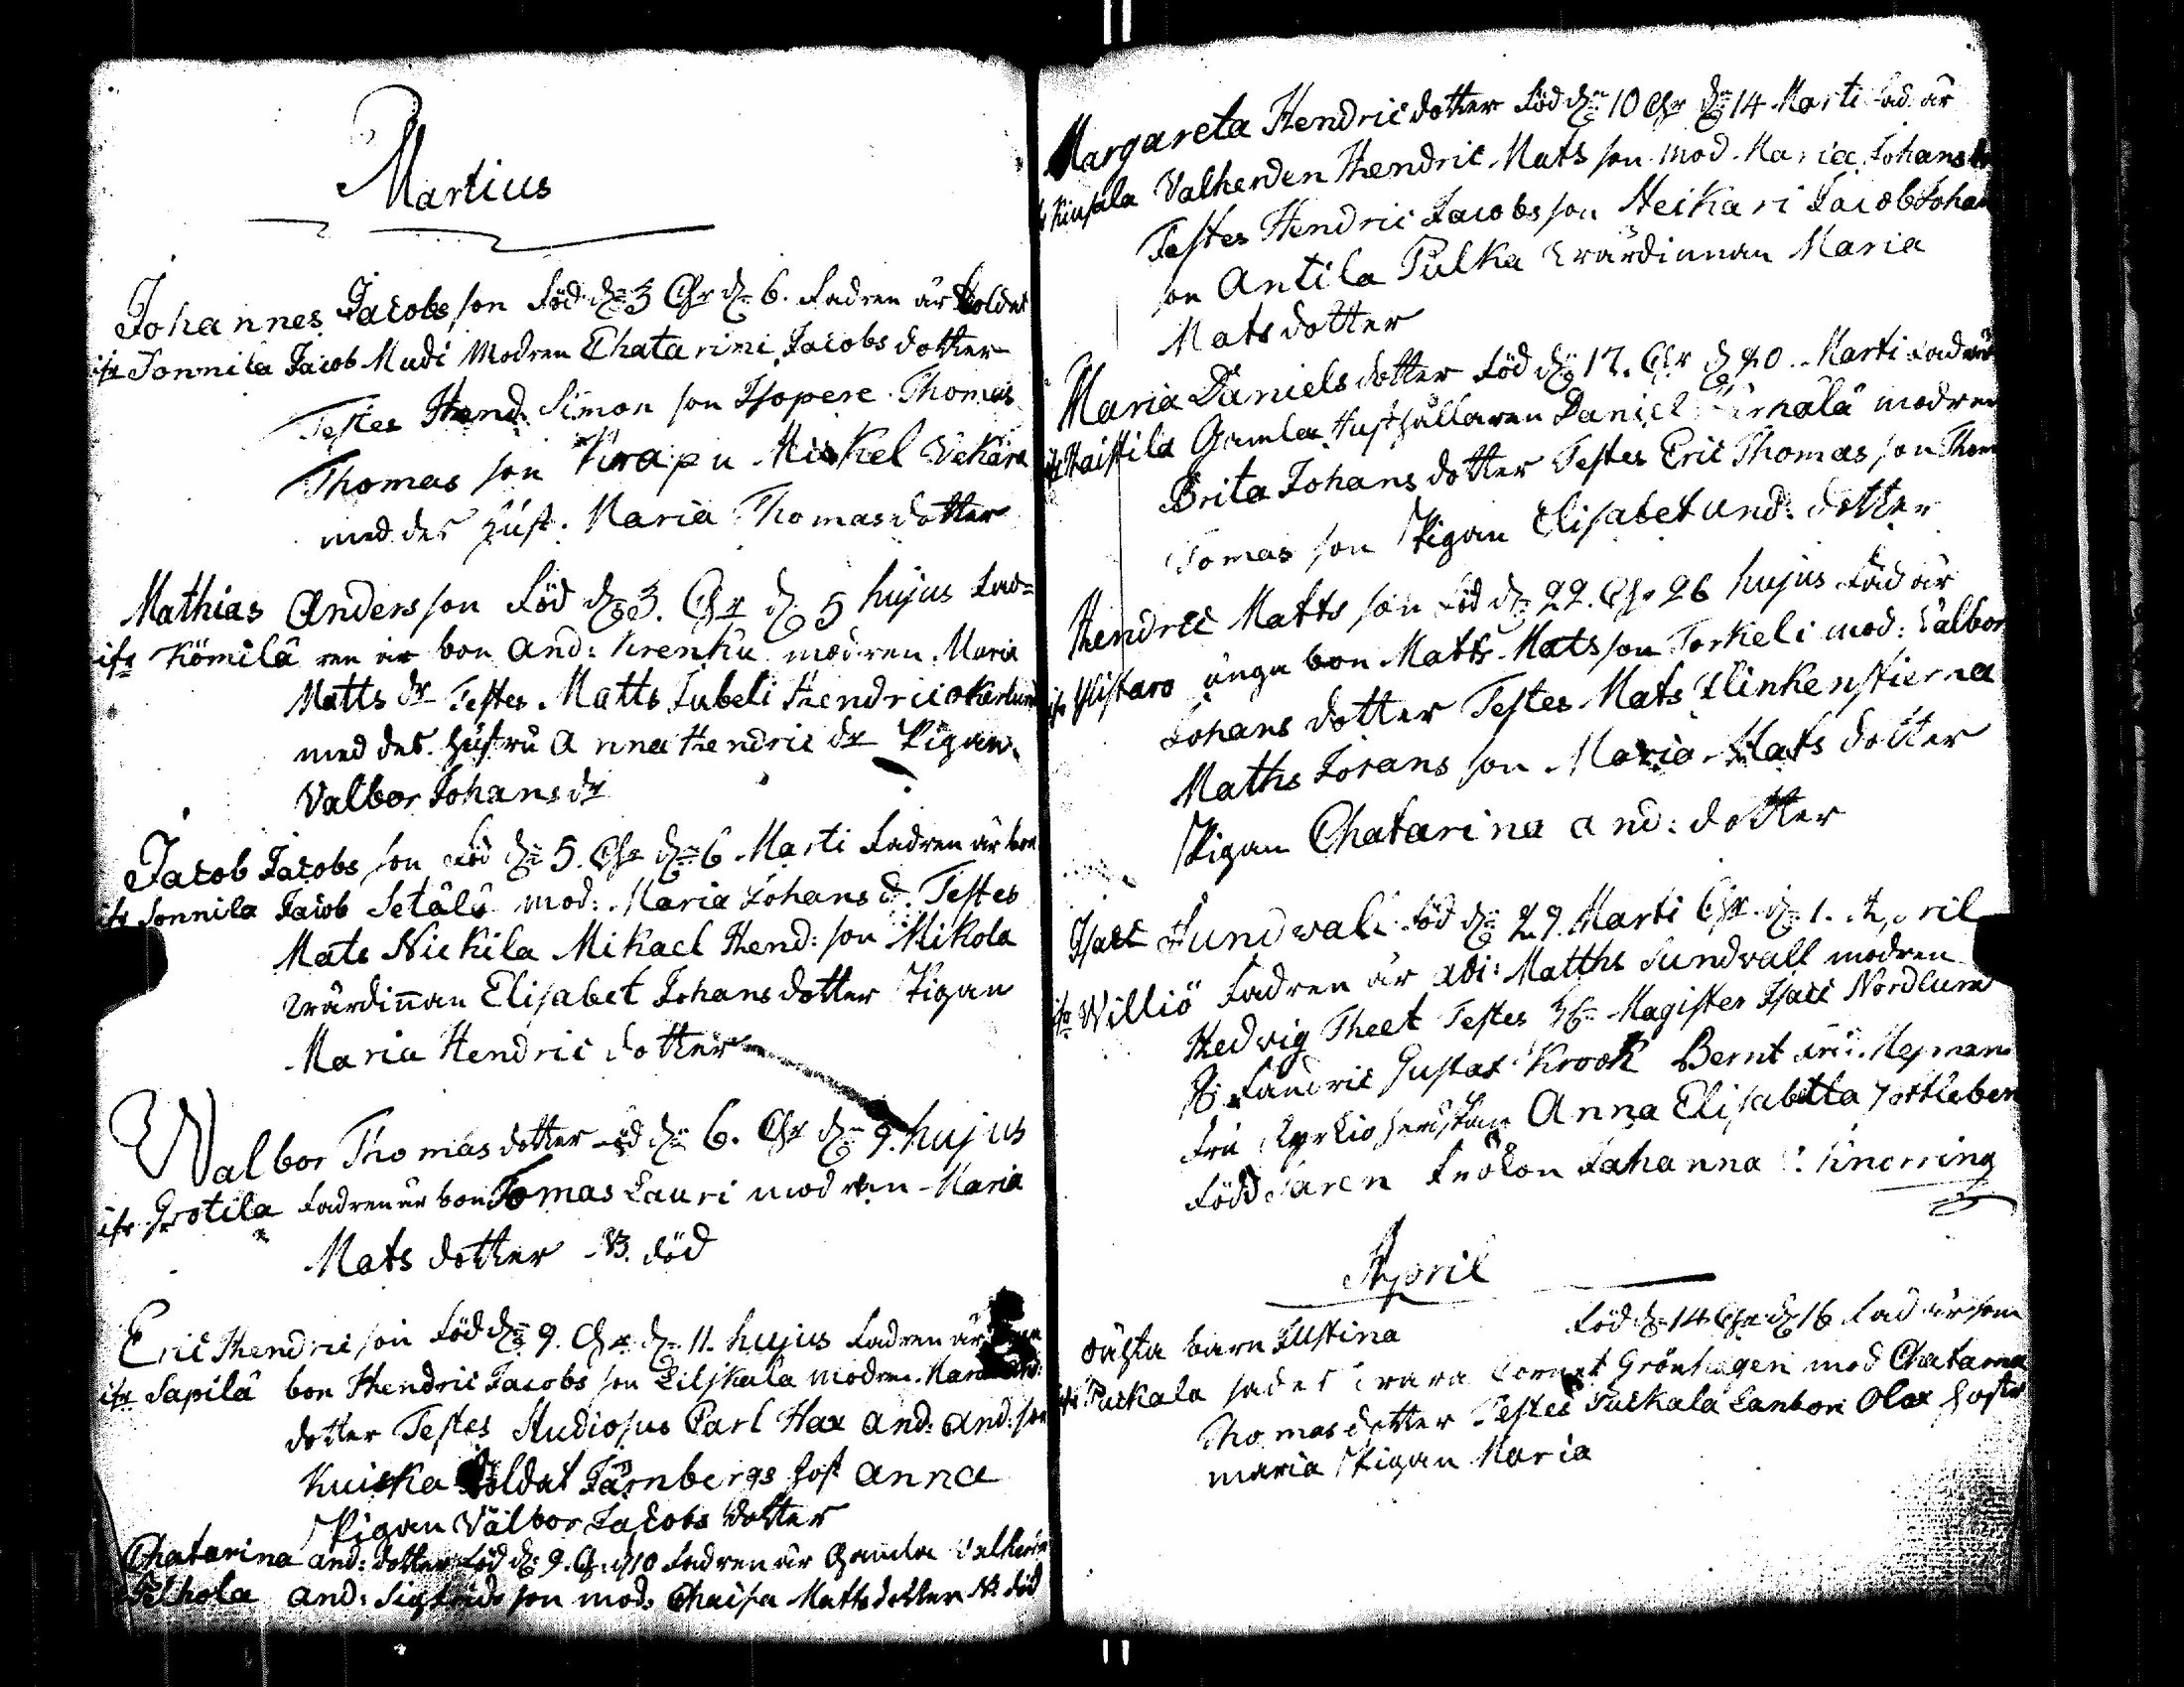 Martius
Johannes Jacobsson Född dn 3 Chr dn 6. Fadren är Soldat
ifr Sonnila Jacob Mudi Modren Chatarini Jacobs dotter
Testes Hend: Simon son Isopere Thomas
Thomas son Mickel
med des Hust: Maria Thomasdotter
Mathias Andersson Född dn 3. Chr d 5 hujus Fad=
ifr Kömilä ren är bon And: Krenku modren Maria
Matts dr Testes Matts Jubeli Hendric
med des Hustru Anna Hendric dr Pigan
Valbor Johans dr
Jacob Jacobs son Föd dn 5. Chr dn 6 Marti Fadren är bon
ifr Sonnila Jacob Setälä mod: Maria Johans d. Testes
Mats Nickila Mikael Hend: son Mikola
wärdinnan Elisabet Johans dotter Pigan
Maria Hendric dotter
Walbor Thomas dotter Föd dn 6. Chr dn 9. hujus
ifr Grotila Fadren är bon Tomas Lauri modren Maria
Mats dotter NB. död
Eric Hendric son Föd dn 9. Chr dn 11. hujus Fadren är
ifr Sapilä bon Hendric Jacobs son Liljkala modren
dotter Testes Studiosus Carl Hax And: And: son
Kuiska Soldat Järnbergs Host Anna
Pigan Välbor Jacobs dotter
Chatarina And: dotter Föd d: 9. Ch: d 10 Fadren är Gamla
And: Sigfrids son mod: Chaisa Matts dotter NB död
Margareta Hendric dotter Föd dn 10 Chr dn 14 Marti Fad är
Valherden Hendric Mats son mod. Maria Johans dr
Testes Hendric Jacobs son Heikari Jacob Johan
son Antila Pulka wärdinnan Maria
Mats dotter
Maria Daniels dotter Föd dn 17. Chr d 20. Marti Fad är
ifr Haistila Gamla Hushållaren Daniel modren
Brita Johans dotter Testes Eric Thomas son Thom
Tomas son Pigan Elisabet And: dotter
Hendric Matts son Föd dn 22. Chr 26 hujus Fad är
ifr Ylistaro unga bon Matts Mats son Torkeli mod: Valbor
Johans dotter Testes Mats Klinkenstierna
Maths Jorans son Maria Mats dotter
Pigan Chatarina And: dotter
Isaac Sundvall Föd dn 29. Marti Chr dn 1. April
ifr Williö Fadren är Adi: Matths Sundvall modren
Hedvig Theet Testes Hr Magister Isaac Nordlund
Gustaf Krook Bernt
Fru Anna Elisabetta
Född Fröken Jahanna Knorring
April
oächta barn Justina Född dn 14 Chr dn 16 Fad är som
ifr Puckala sades wara Cornet Grönhagen mod Chatarina
Thomas dotter Testes Puckala Lanbon Olax Hostr
maria Pigan Maria